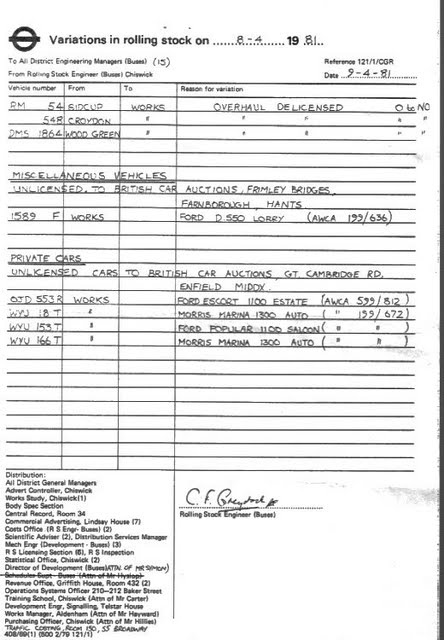 Variations in rolling stock on 8-4 1981.
To All District Engineering Managers (Buses) (15)
Reference 121/1/CGR
From Rolling Stock Engineer (Buses) Chiswick
Date 9-4-81
Vehicle number From To Reason for variation
RM 54 SIDCUP WORKS OVERHAUL DELICENSED O to NO
548 CROYDON " " " " "
DMS 1864 WOOD GREEN " " " " "
MISCELLANEOUS VEHICLES
UNLICENSED. TO BRITISH CAR AUCTIONS, FRIMLEY BRIDGES,
FARNBOROUGH, HANTS.
1589 F WORKS FORD D550 LORRY (AWCA 199/636)
PRIVATE CARS
UNLICENSED CARS TO BRITISH CAR AUCTIONS, GT. CAMBRIDGE RD.
ENFIELD MIDDX.
OJD 553R WORKS FORD ESCORT 1100 ESTATE (AWCA 599/812)
WYU 18T " MORRIS MARINA 1300 AUTO ( " 199/672)
WYU 153T " FORD POPULAR 1100 SALOON ( " " )
WYU 166T " MORRIS MARINA 1300 AUTO ( " " )
Distribution:
All District General Managers
Advert Controller, Chiswick
Works Study, Chiswick(1)
Body Spec Section
Central Record, Room 34
Commercial Advertising, Lindsay House (7)
Costs Office (R S Engr- Buses) (2)
Scientific Adviser (2), Distribution Services Manager
Mech Engr (Development - Buses) (3)
R S Licensing Section (6), R S Inspection
Statistical Office, Chiswick (2)
Director of Development (Buses) ATTN. OF MR SIMON)
Schedules Supt - Buses (Attn of Mr Hyslop)
Revenue Office, Griffith House, Room 432 (2)
Operations Systems Officer 210-212 Baker Street
Training School, Chiswick (Attn of Mr Carter)
Development Engr, Signalling, Telstar House
Works Manager, Aldenham (Attn of Mr Hayward)
Purchasing Officer, Chiswick (Attn of Mr Hillies)
TRAFFIC COSTING, ROOM 150, 55 BROADWAY
408/69(1) (500 2/79 121/1)
Rolling Stock Engineer (Buses)